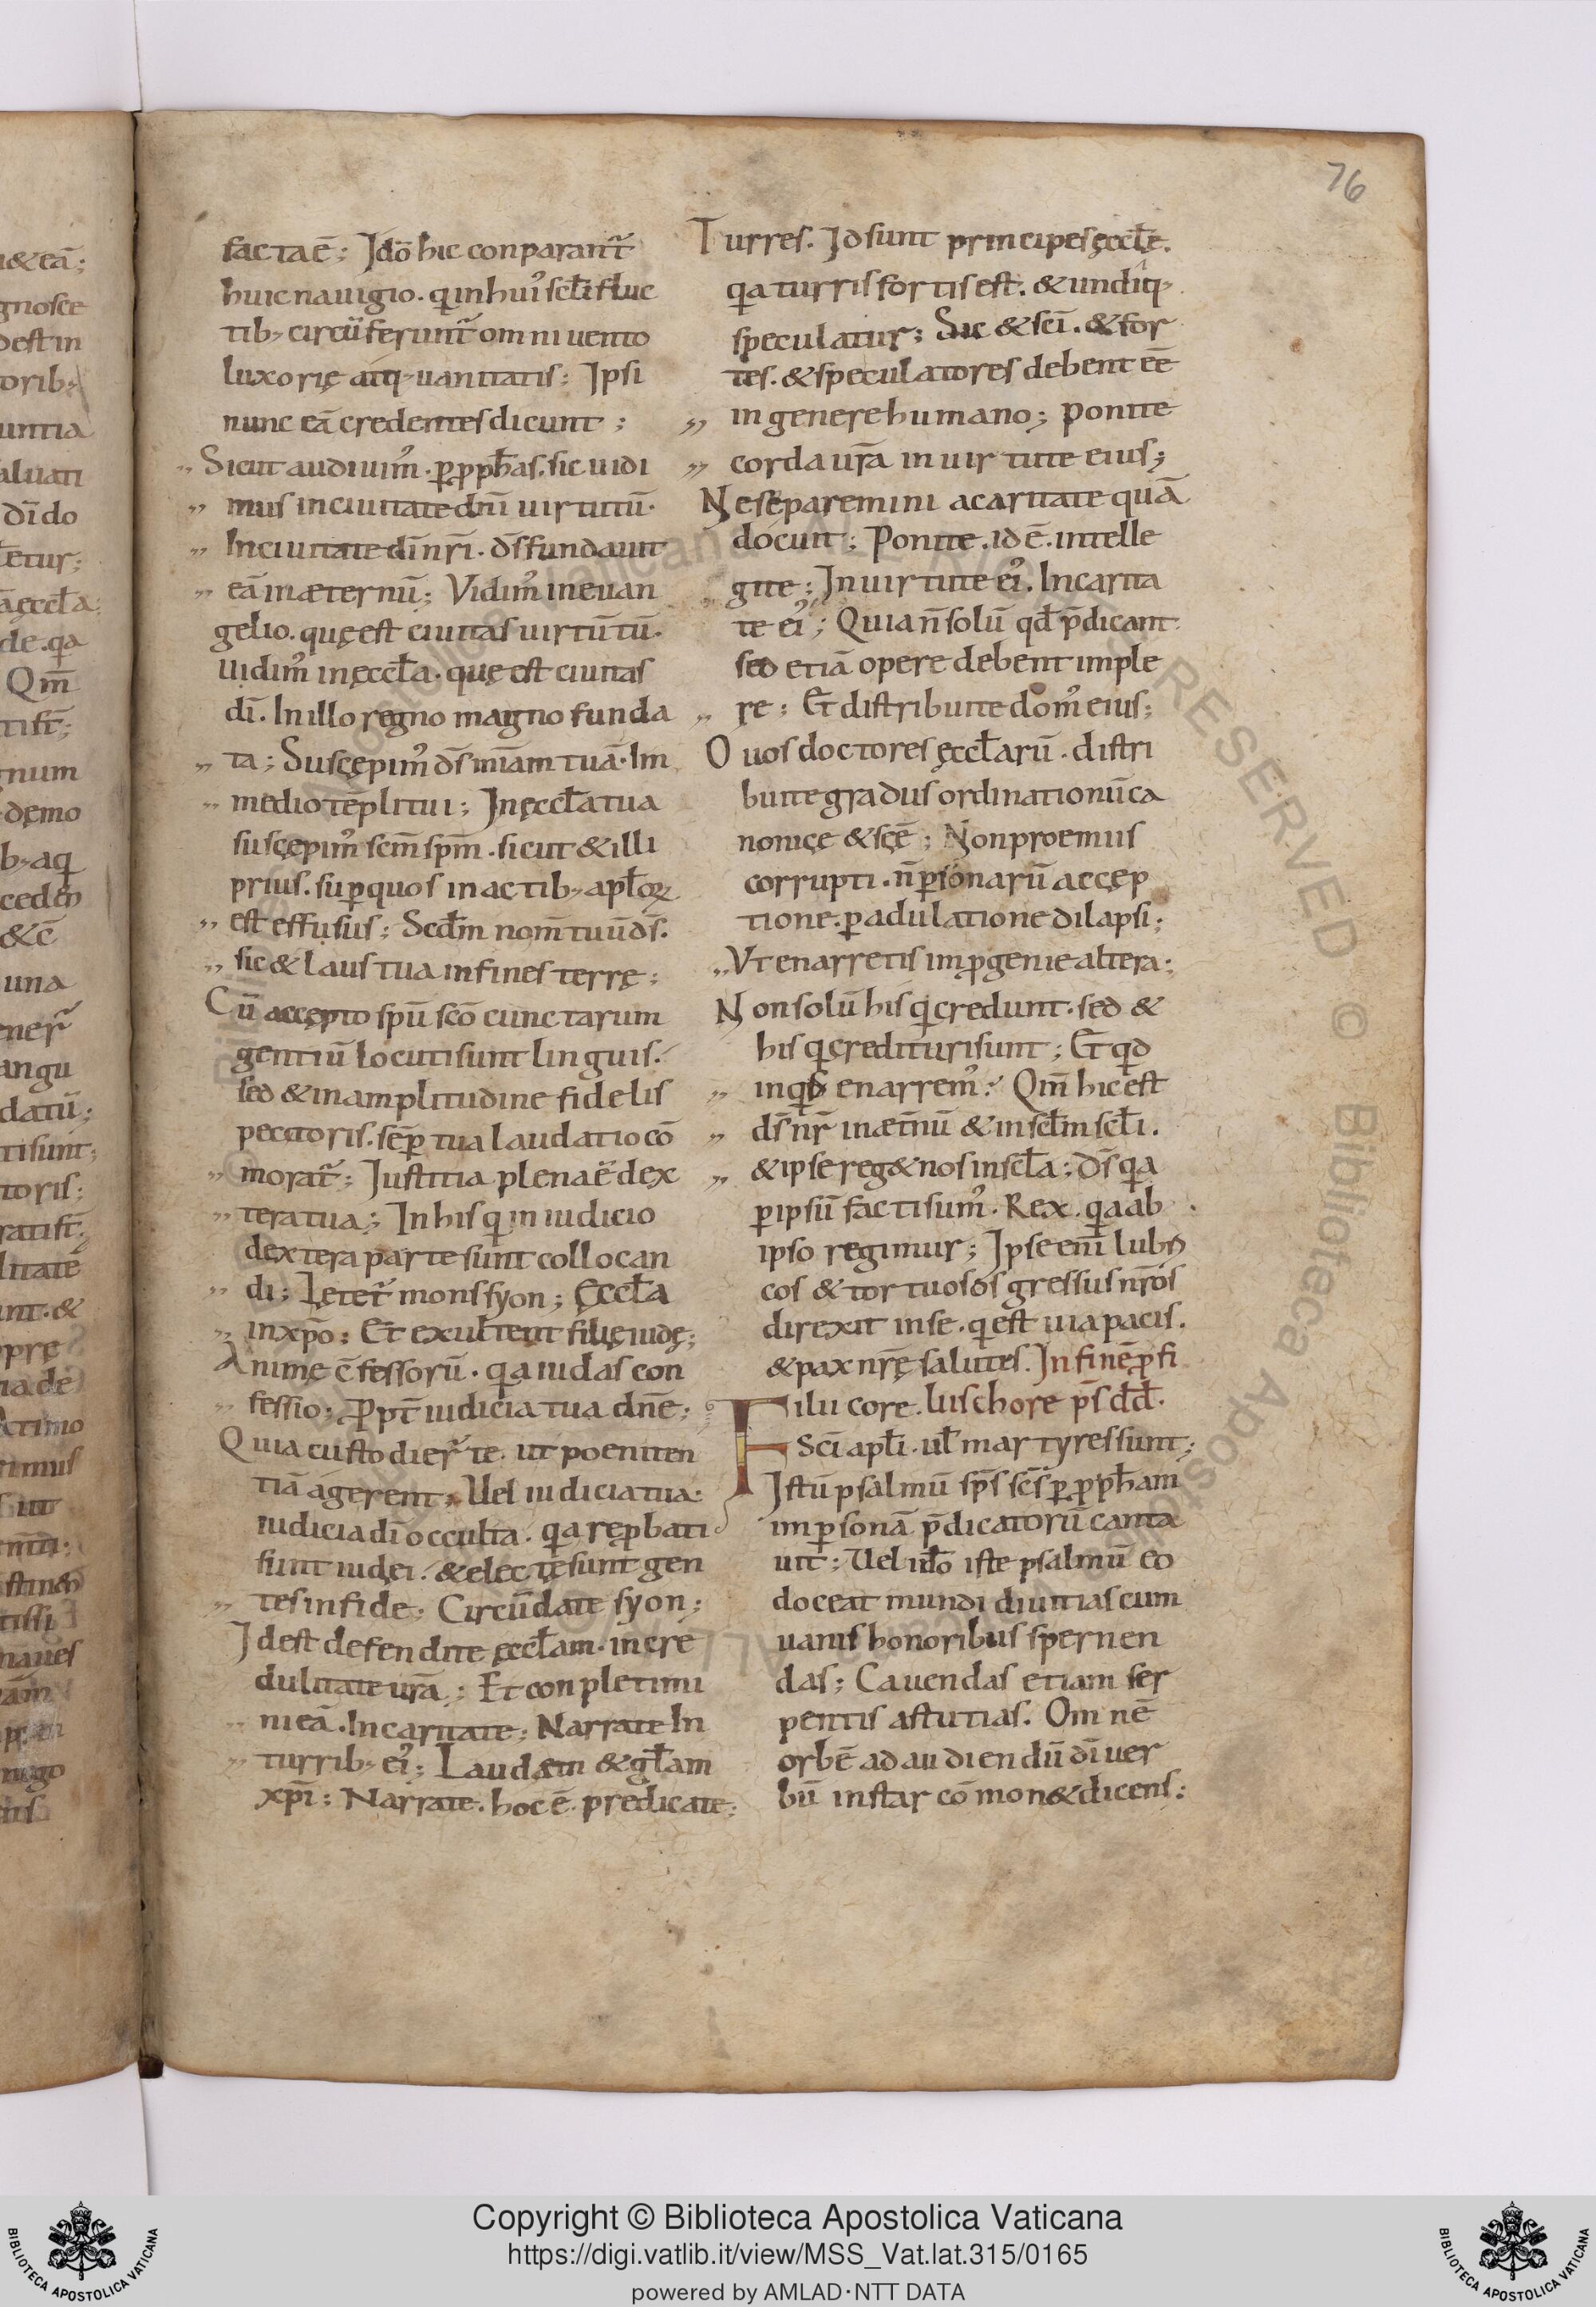 76
facta ē; Ido hic conparant̄
huic nauigio. q̇ in hui᾽ scl̄i fluc
tib; circūferunt̄ omni uento
luxorię atq; uanitatis; Ipsi
nunc eā credentes dicunt;
Sicut audiuim᾽. ꝑ ꝓph̄as. sic uidi
mus in ciuitate dn̄i uirtutū.
In ciuitate dī nr̄i. ds̄ fundauit
eā in æternū; Vidim᾽ in euan
gelio. quę est ciuitas uirtutū.
Uidim᾽ in ęccl̄a. quę est ciuitas
dī. In illo regno magno funda
ta; Suscępim᾽ ds̄ miam̄ tuā. In
medio tēpli tui; In ęccl̄a tua
suscępim᾽ scm̄ spm̄. sicut & illi
prius. suꝑ quos in actib; apl̄oꝝ
est effusus; Scd̄m nom̄ tuū ds̄.
sic & laus tua in fines terrę;
Cū accępto spū scō cunctarum
gentiū locuti sunt linguis.
sed & in amplitudine fidelis
peccatoris. sēꝑ tua laudatio cō
morat̄; Iustitia plena ē dex
tera tua; In his q̇ in iudicio
dextera parte sunt collocan
di; Lętet̄ mons syon; Ęccl̄a
in xp̄o; Et exultent filię iudę;
Animę c̄fessorū. qa iudas con
fessio; Ꝓpt̄ iudicia tua dn̄e;
Quia custodier̄ te. ut poeniten
tiā agerent; Uel iudicia tua.
iudicia dī occulta. qa reꝓbati
sunt iudęi. & electę sunt gen
tes in fide; Circūdate syon;
Id est defendite ęccl̄am. in cre
dulitate urā; Et conpletimi
ni eā. In caritate; Narrate In
turrib; ei᾽; Laudem & gl̄am
xp̄i; Narrate. hoc ē. predicate;
Turres. Id sunt principes ęccl̄ę.
qa turris fortis est. & undiq;
speculatur; Sic & scī. & for
tes. & speculatores debent eē
in genere humano; Ponite
corda urā in uirtute eius;
Ne separemini a caritate quā
docuit; Ponite. id ē. intelle
gite; In uirtute ei᾽. In carita
te ei᾽; Quia n̄ solū qd̄ p̄dicant
sed etiā opere debent imple
re; Et distribuite dom᾽ eius;
O uos doctores ęccl̄arū. distri
buite gradus ordinationū ca
nonicę & scę̄; Non proemiis
corrupti. n̄ ꝑsonarū accęp
tione. ꝑ adulatione dilapsi;
Vt enarretis in ꝓgenie altera;
Non solū his q̇ credunt. sed &
his q̇ credituri sunt; Et qd
inqd enarrem᾽? Qm̄ hic est
ds̄ nr̄ in æt̄nū & in scl̄m scl̄i.
& ipse reg& nos in scl̄a; Ds̄ qa
ꝑ ipsū facti sum᾽. Rex. qa ab
ipso regimur; Ipse enī lubri
cos & tortuosos gressus nr̄os
direxit in se. q̇ est uia pacis.
& pax nrę̄ salutes. In finē ꝓ fi
Filii core. liis chore ps̄ dd̄.
Scī apl̄i. ul̄ martyres sunt;
Istū psalmū sps̄ scs̄ ꝑ ꝓph̄am
in ꝑsonā p̄dicatorū canta
uit; Uel ido iste psalmū eo
doceat mundi diuitias cum
uanis honoribus spernen
das; Cauendas etiam ser
pentis astutias. Omnē
orbē ad audiendū dī uer
bū instar cōmon& dicens;
Copyright © Biblioteca Apostolica Vaticana
https://digi.vatlib.it/view/MSS_Vat.lat.315/0165
powered by AMLAD·NTT DATA
BIBLIOTECA APOSTOLICA VATICANA
BIBLIOTECA APOSTOLICA VATICANA